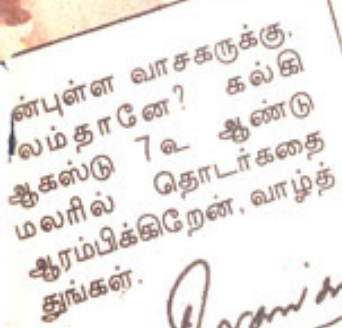 ன்புள்ள வாசகருக்கு,
லம்தானே? கல்கி
ஆகஸ்டு 7உ ஆண்டு
மலரில் தொடர்கதை
ஆரம்பிக்கிறேன். வாழ்த்
துங்கள்.